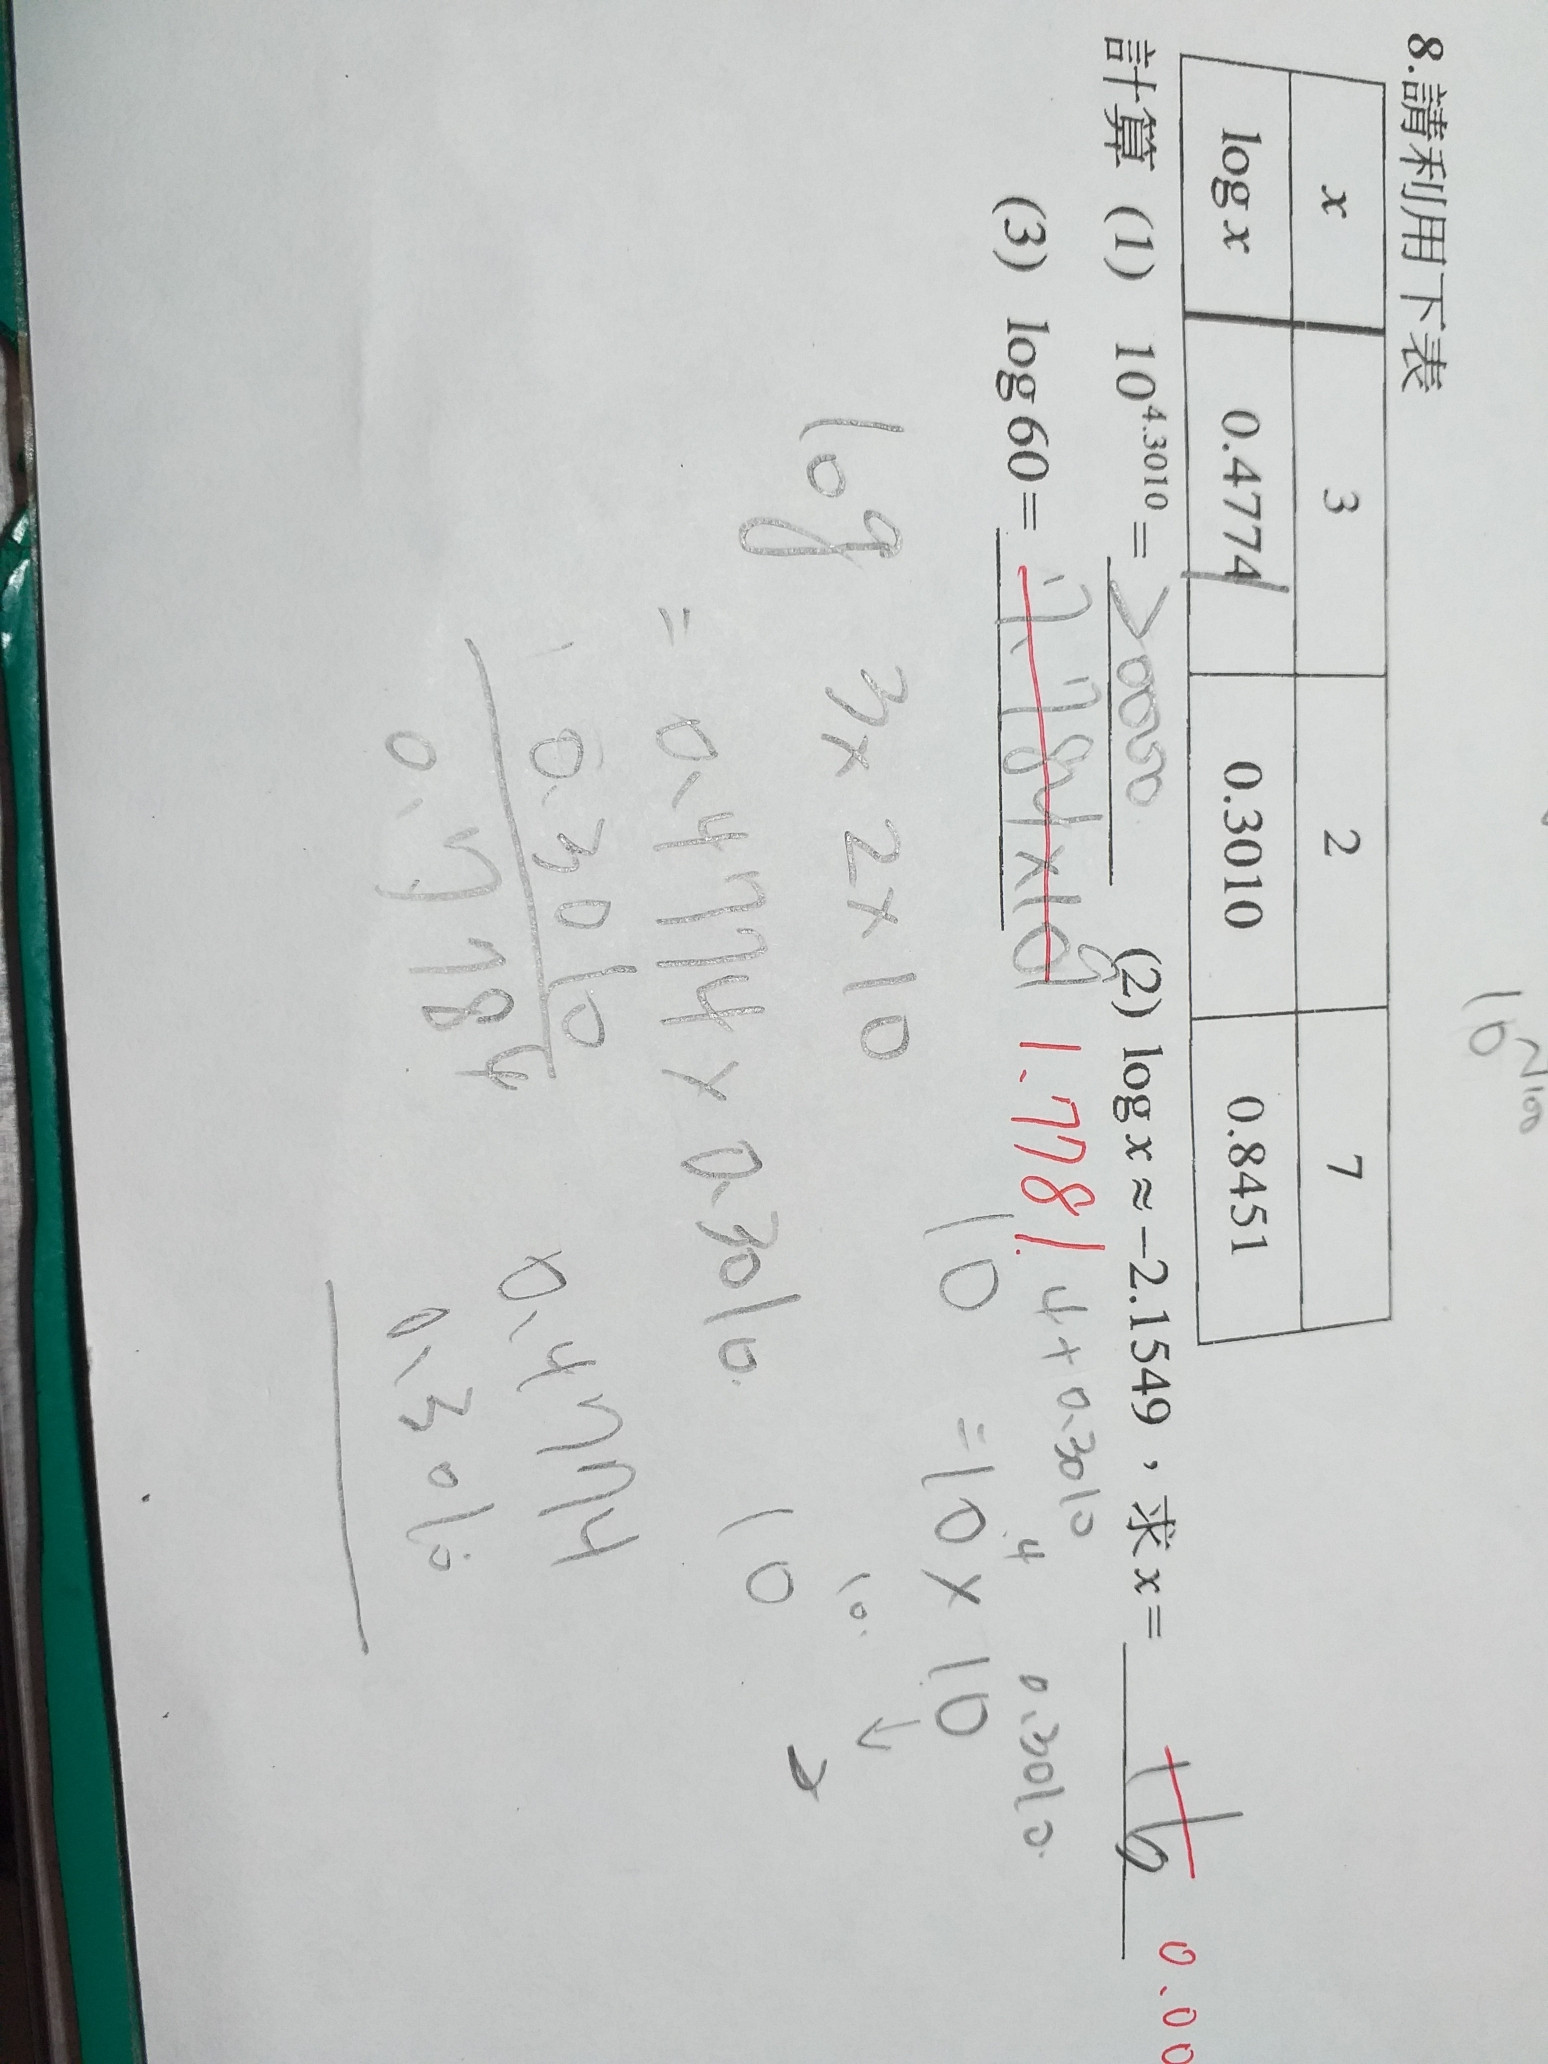 8.請利用下表
x 3 2 7
log x 0.4774 0.3010 0.8451
計算 (1) 10^4.3010 = 20000 (2) log x ≈ −2.1549，求 x = 0.00
(3) log 60 = 1.7781
4+0.3010
10 = 10 × 10
4 0.3010
log 3 × 2 × 10
10
= 0.4774 × 0.3010
10
0.3010
0.7784
0.4774
0.3010